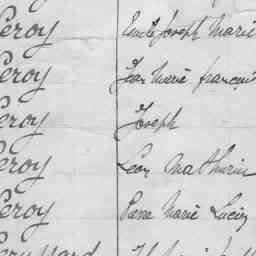 Leroy Emile Joseph Marie
Leroy Jean Marie François
Leroy Joseph
Leroy Léon Mathurin
Leroy Pierre Marie Lucien